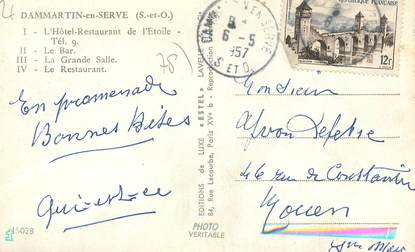 DAMMARTIN-en-SERVE (S.-et-O.)
I - L'Hôtel-Restaurant de l'Etoile -
Tél. 9.
II - Le Bar.
III - La Grande Salle.
IV - Le Restaurant.
(78)
En promenade
Bonnes Bises
Qui-est-ce
15-028
EDITIONS de LUXE « ESTEL » LAVELLE
84, Rue Lecourbe, Paris XVe - Reproduction
PHOTO
VERITABLE
6-5
1957
S. ET O.
RÉPUBLIQUE FRANÇAISE
12F
Monsieur
Yvon Lefebre
46 rue de Constantine
Rouen